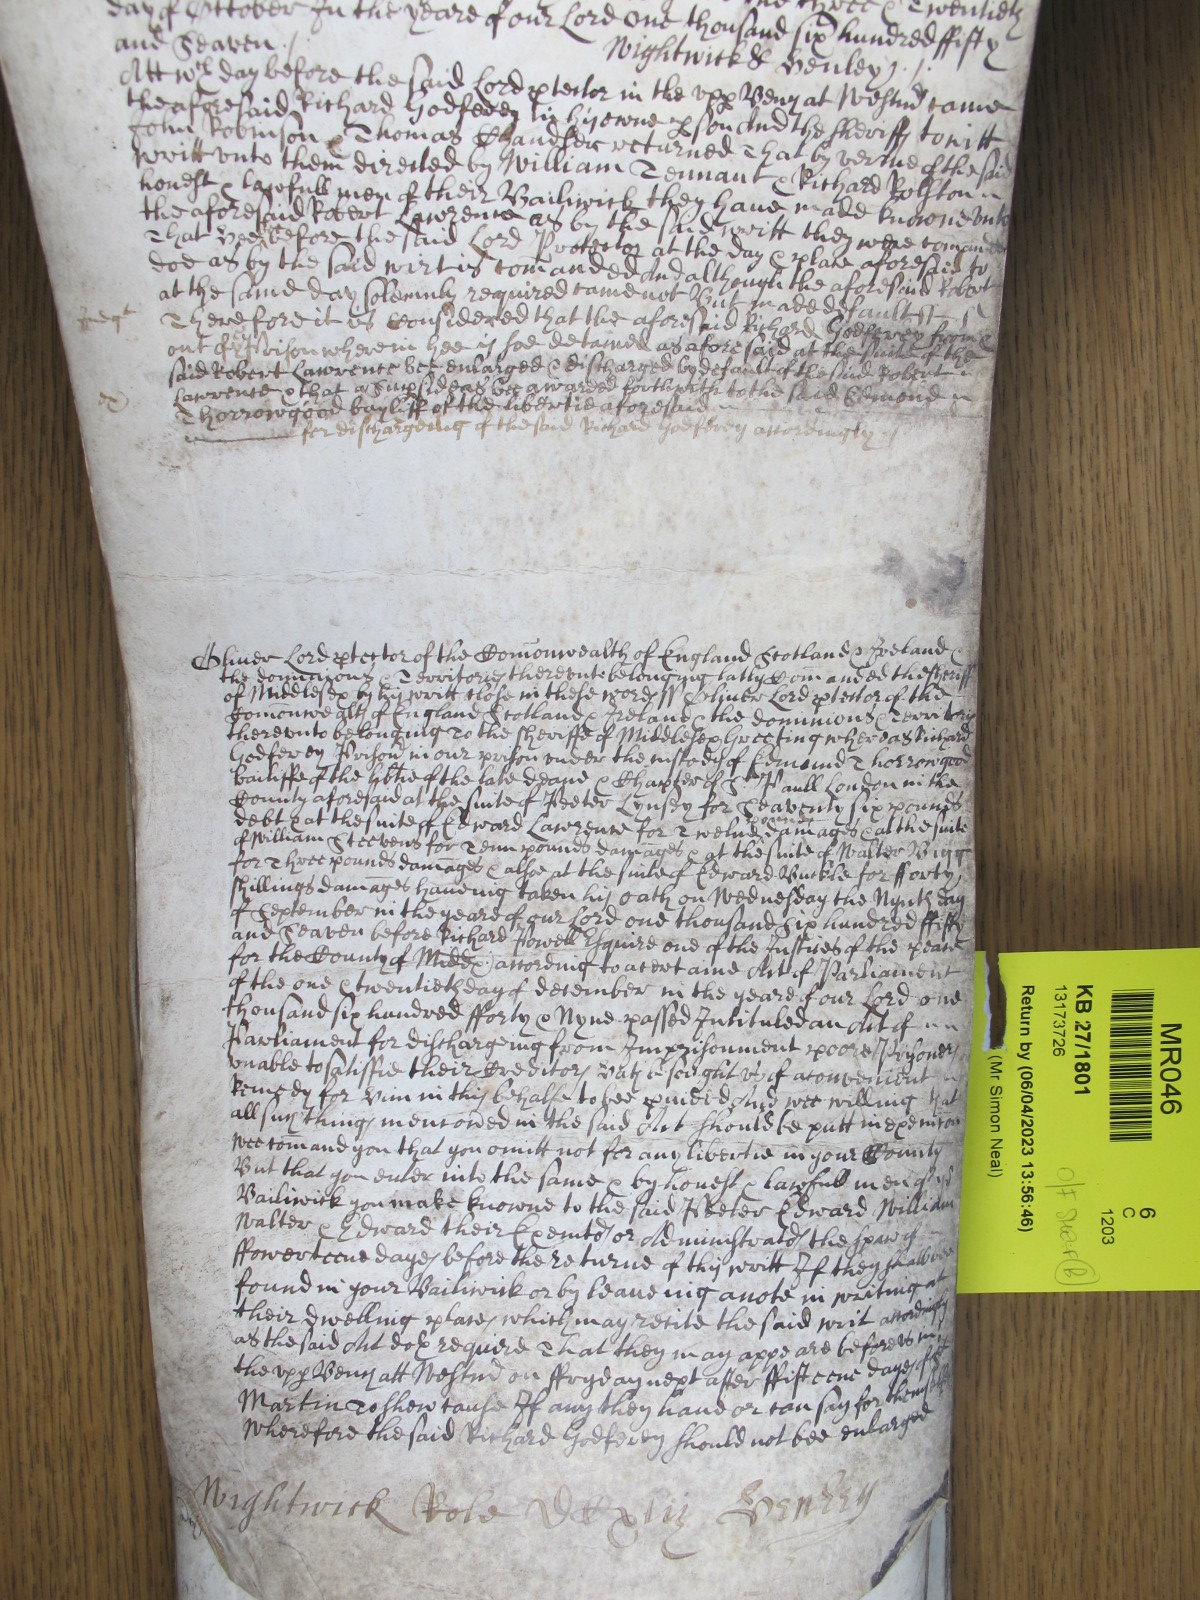 day of October In the yeare of our Lord One thousand six hundred ffifty
and Seaven ./ Wightwick & Venley ./.
Att wch day before the said Lord ptector in the vpp Bench at Westmr came
the aforesaid Richard Godferey in his owne pson And the Sheriffs to witt
John Robinson & Thomas Chandler returned That by vertue of the said
writt vnto them directed by William Tennant & Richard Rolston
honest & lawfull men of their Bailiwick they haue made knowne vnto
the aforesaid Robert Lawrence as by the said writt they were comanded
That before the said Lord Protector at the day & place aforesaid to
doe as by the said writ is comanded And although the aforesaid Robert
at the same day solemnly required came not But made default
Therefore it is Considered that the aforesaid Richard Godferey from &
out of prison wherein hee is soe detained as aforesaid at the suite of the
said Robert Lawrence bee enlarged & discharged by default of the said Robert
Lawrence & that a Supsideas bee awarded forthwith to the said Edmond
Thorrowgood bayliff of the libertie aforesaid
for dischargeing of the said Richard Godferey accordingly
Oliuer Lord ptector of the Comonwealth of England Scotland & Ireland &
the dominions & Territories therevnto belonging lately Comanded the Sheriff
of Middlesex by his writt close in these words ss Oliuer Lord ptector of the
Comonwealth of England Scotland & Ireland & the dominions & Territories
therevnto belonging To the Sheriffe of Middlesex Greeting whereas Richard
Godferey Prisoner in our prison vnder the custody of Edmond Thorrowgood
bailiffe of the libtie of the late deane & Chapter of St Paull London in the
County aforesaid at the suite of Peeter Lynsey for Seaventy six pounds
debt & at the suite of Edward Lawrence for Twelue pounds damages & at the suite
of William Steevens for Tenn pounds damages & at the suite of Walter Bigg
for Three pounds damages & alsoe at the suite of Edward Buckle for fforty
shillings damages haueing taken his oath on Wednesday the Nynth day
of September in the yeare of our Lord one thousand six hundred ffifty
and Seaven before Richard Powell Esquire one of the Justices of the peace
for the County of Middx according to a certaine Act of Parliament
of the one & twentieth day of december in the yeare of our Lord one
thousand six hundred fforty & Nyne passed Intituled an Act of
Parliament for dischargeing from Imprisonment poore Prisoners
vnable to satisfie their Creditors hath besought vs of a convenient
Remedy for him in this behalfe to bee pvided And wee willing that
all such things mencioned in the said Act should be putt in execucion
wee comand you that you omitt not for any libertie in your County
But that you enter into the same & by honest & lawfull men of yor
Bailiwick you make knowne to the said Peeter Edward William
Walter & Edward their Executors or Administrators the space of
ffowerteene dayes before the returne of this writt If they shalbee
found in your Bailiwick or by leaueing a note in writing at
their dwelling places which may recite the said writ accordingly
as the said Act doth require That they may appeare before vs in
the vpp Bench att Westmr on ffryday next after ffifteene dayes of St
Martin to shew cause If any they haue or can say for themselues
Wherefore the said Richard Godferey should not bee enlarged
Wightwick Role Venley
MR046
KB 27/1801
13173726
Return by (06/04/2023 13:56:46)
(Mr Simon Neal)
6
C
1203